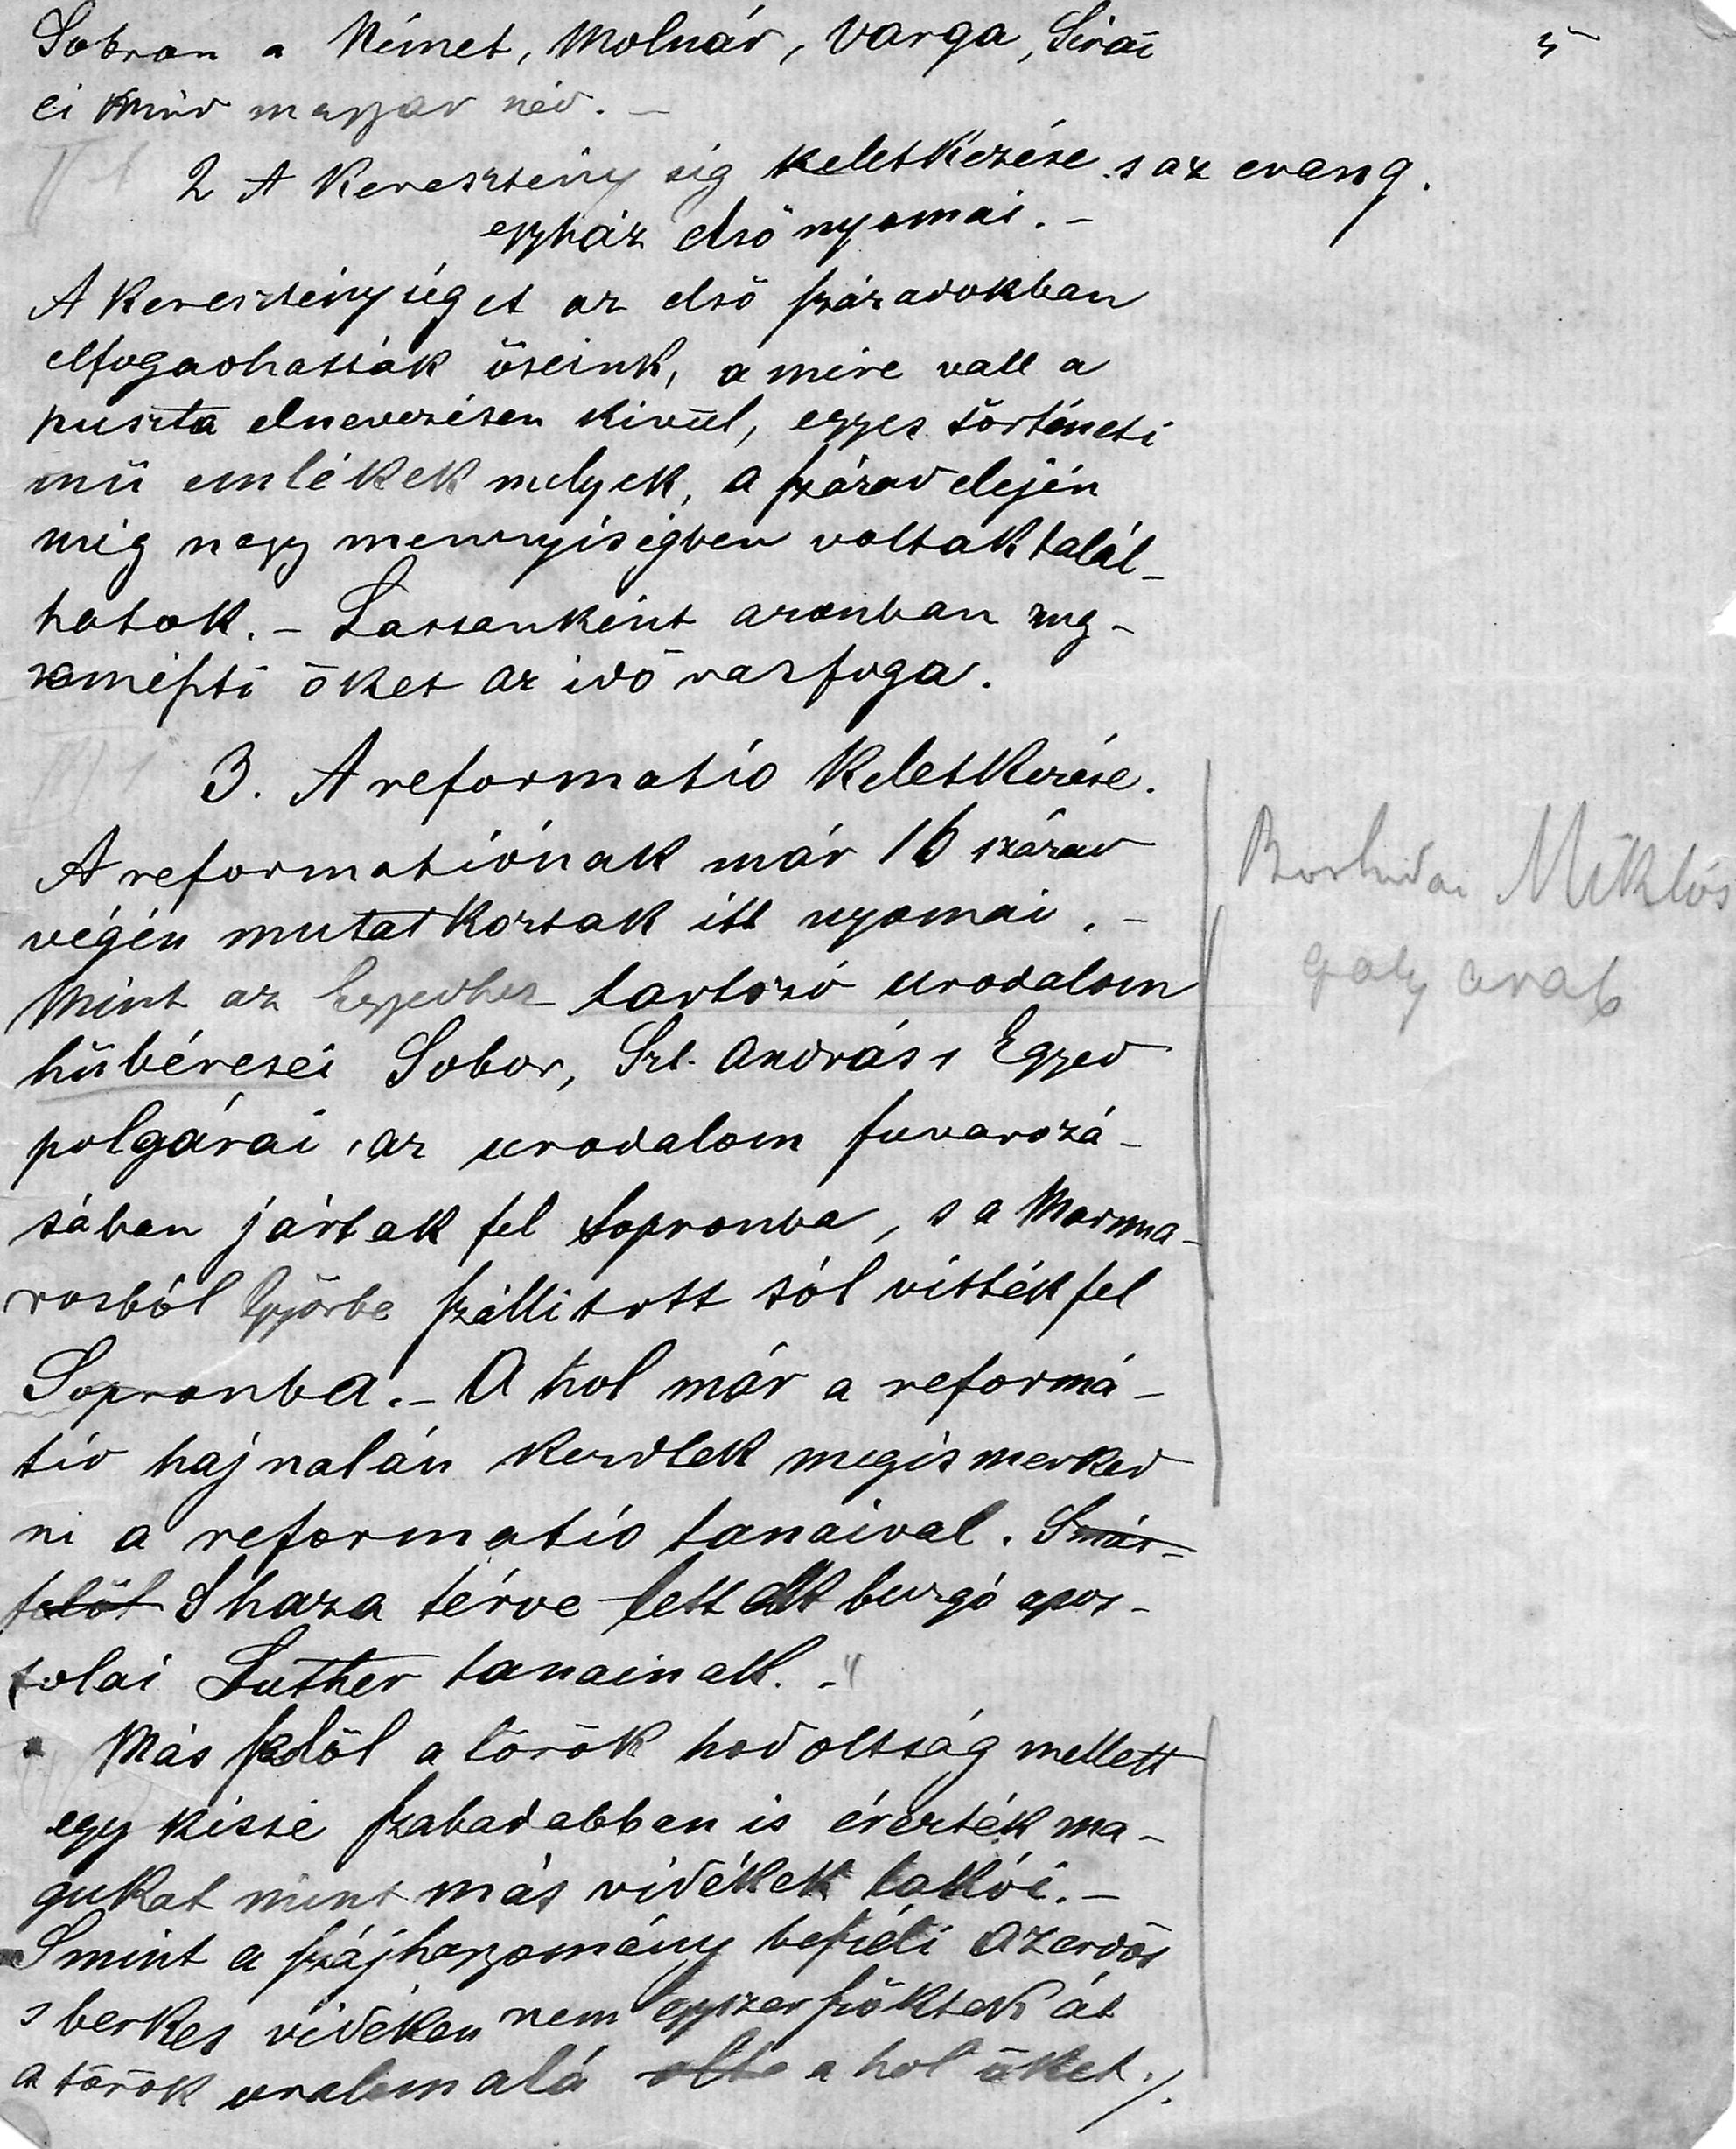 Sobron a Német, Molnár, Varga,
5
mind magyar név. —
2 A Keresztény ség keletkezése s az evang.
egyház első nyomai. —
A Kereszténységet az első századokban
elfogadhatták őseink, a mire vall a
puszta elnevezésen kivűl, egyes történeti
mű emlékek melyek, a század elején
még nagy mennyiségben voltak talál-
hatok. — Lassanként azonban meg-
emészti őket az idő vasfoga.
3. A reformatió Keletkezése.
A reformatiónak már 16 század
végén mutatkoztak itt nyomai. —
Mint az Egyedhez tartozó uradalom
hűbéresei Sobor, Szt. András s Egyed
polgárai, az uradalom fuvarozá-
sában jártak fel Sopronba, s a Marma-
rosból Győrbe szállitott sót vitték fel
Sopronba. — A hol már a reformá-
tió hajnalán kezdtek megismerked
ni a reformatió tanaival. Smás-
felől S haza térve lettek buzgó apos-
tolai Luther tanainak. — "
Más felől a török hodoltság mellett
egy kissé szabadabban is érezték ma-
gukat mint más vidékek lakói. —
S mint a szájhagyomány beszéli az erdős
s berkes vidéken nem egyszer szöktek át
a török uralom alá a hol őket ./.
Miklós